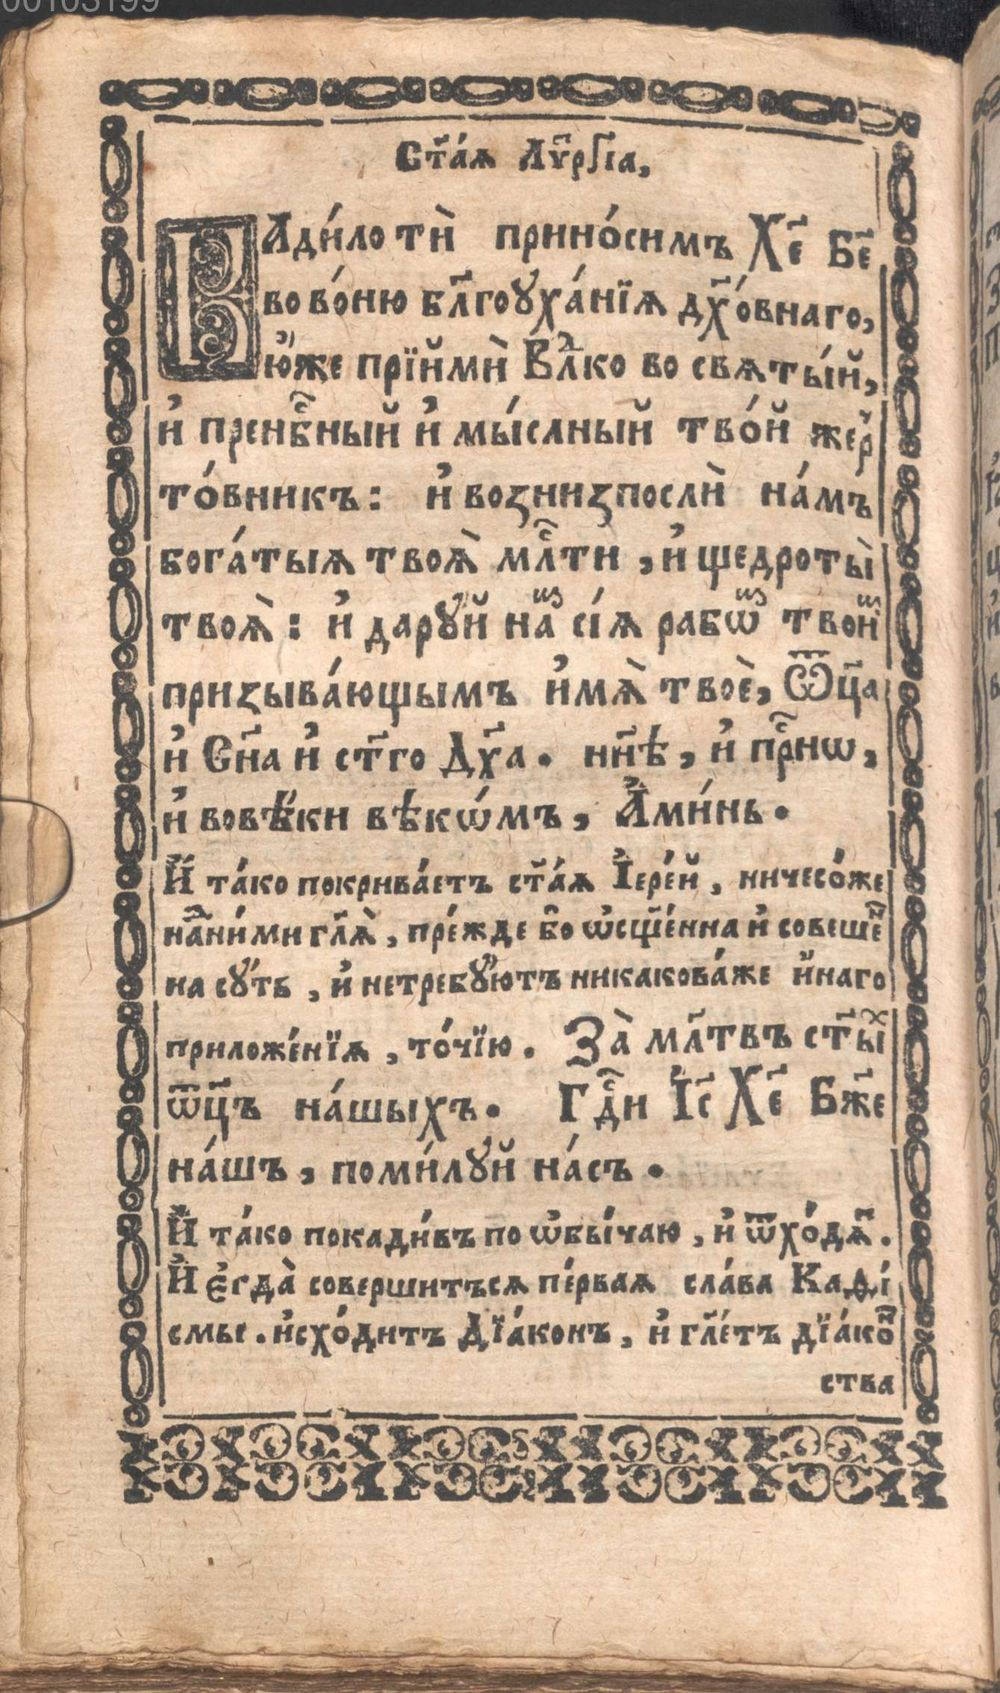 00103199
Ст҃а́ѧ Лѵ҃ргїа,
Кади́ло тѝ прино́симъ Хе҃ Бе҃
во во́ню бл҃гоꙋха́нїѧ дх҃о́внаго,
ю҆́же прїймѝ Вл҃ко во свѧты́й,
и҆ пренбⷭ҇ный и҆ мы́слный тво́й же́р
то́вникъ: и҆ вознизпослѝ на́мъ
бога́тыѧ твоѧ̀ млⷭ҇ти, и҆ щедроты̀
твоѧ̀: и҆ дарꙋ́й наⷨ сі́ѧ рабѡⷨ твоиⷨ
призыва́ющымъ и҆мѧ̀ твоѐ, Ѿц҃а
и҆ Сн҃а и҆ ст҃го Дх҃а. нн҃ѣ, и҆ прⷭ҇нѡ,
и҆ вовѣ́ки вѣкѡ́мъ, А҆ми́нь.
И҆ та́ко покрива́етъ ст҃а́ѧ І҆ере́й, ничесо́же
наⷣ ни́ми гл҃ѧ̀, пре́жде бо ѡ҆сщ҃е́нна и҆ совеше́ⷩ
на сꙋ́ть, и҆ нетребꙋ́ютъ никакова́же и҆́наго
приложе́нїѧ, то́чїю. За̀ мл҃твъ ст҃ыⷯ
ѿц҃ъ на́шыхъ. Гдⷭ҇и І҆с҃ Хе҃ Бж҃е
на́шъ, поми́лꙋй на́съ.
И҆ та́ко покади́въ по ѡ҆бы́чаю, и҆ ѿхо́дѧⷮ.
И҆ є҆гда̀ совершитъсѧ пе́рваѧ сла́ва Каѳі́
смы. и҆схо́дитъ Дїа́конъ, и҆ гл҃е́тъ дїа́коⷩ
ства